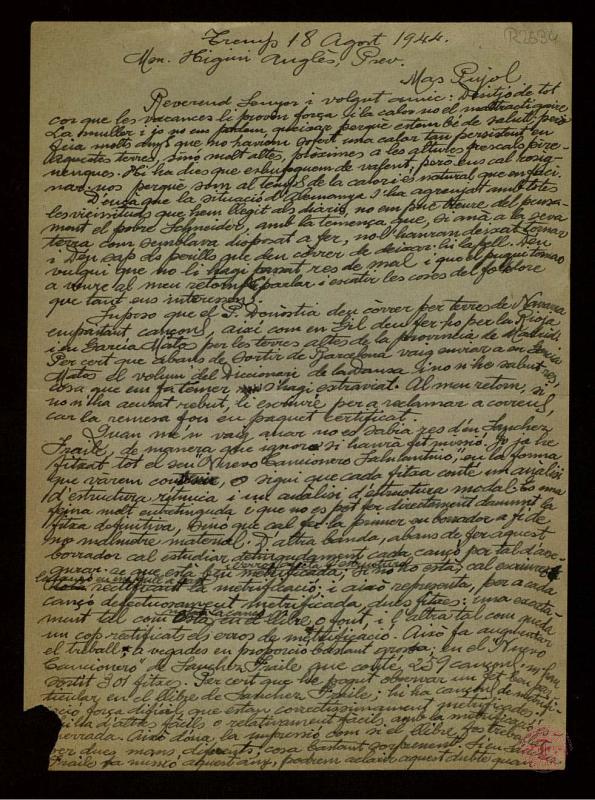 R2534
Tremp 18 Agost 1944.
Mon. Higini Anglès, Prev.
Mas Pujol
Reverend Senyor i volgut amic: Desitjo de tot
cor que les vacances li provin força i la calor no el
La muller i jo no ens podem queixar perquè estem bé de salut, però
feia molts anys que no havíem sofert una calor tan persistent en
aquestes terres, sinó molt altes, pròximes a les altures frescals pire-
nenques. Hi ha dies que esbufeguem de valent, però ens cal resig-
nar-nos perquè som al temps de la calor i és natural que en faci.
D'ençà que la situació d'Alemanya s'ha agreujat amb totes
les vicissituds que hem llegit als diaris, no em puc treure del pensa-
ment el pobre Schneider, amb la temença que, si anà a la seva
terra com semblava disposat a fer, no l'hauran deixat tornar
i Deu sap els perills que deu córrer de deixar-hi la pell. Deu
vulgui que no li hagi passat res de mal i que el pugui tornar
a veure al meu retorn i parlar i escatir les coses del folklore
que tant ens interessen.
Suposo que el P. Donòstia deu córrer per terres de Navarra
empaitant cançons, així com en Gil deu fer-ho per la Rioja
i en Garcia Matos per les terres altes de la província de Madrid.
Per cert que abans de sortir de Barcelona vaig enviar a en Garcia
Matos el volum del Diccionari de la Dansa i no n'he sabut res,
cosa que em fa témer s'hagi extraviat. Al meu retorn, si
no n'ha acusat rebut, li escriuré per a reclamar a correus,
car la remesa fou en paquet certificat.
Quan me'n vaig anar no es sabia res d'en Sanchez
Fraile, de manera que ignoro si haurà fet missió. Jo ja he
fitxat tot el seu "Nuevo Cancionero Salmantino", en la forma
que vàrem convenir, o sigui que cada fitxa conté un anàlisi
d'estructura rítmica i un anàlisi d'estructura modal. És una
feina molt entretinguda i que no es pot fer directament damunt la
fitxa definitiva, sinó que cal fer-la primer en borrador a fi de
no malmetre material. D'altra banda, abans de fer aquest
borrador cal estudiar detingudament cada cançó per tal d'asse-
gurar-se que està ben metrificada; si no ho està, cal escriure
rectificant la metrificació; i això representa, per a cada
cançó defectuosament metrificada, dues fitxes: una exacta-
ment tal com està en el llibre o font, i l'altra tal com queda
un cop rectificats els errors de metrificació. Això fa augmentar
el treball a vegades en proporció bastant grossa; en el "Nuevo
Cancionero" de Sanchez Fraile que conté 259 cançons, m'han
sortit 301 fitxes. Per cert que he pogut observar un fet ben par-
ticular en el llibre de Sanchez Fraile: hi ha cançons de metrifi-
cació força difícil que estan correctíssimament metrificades,
i n'hi ha d'altres fàcils o relativament fàcils amb la metrificació
errada. Això dóna la impressió com si el llibre fos treballat
per dues mans diferents, cosa bastant sorprenent. Si en Sanchez
Fraile fa missió aquest any, podrem aclarir aquest dubte quan